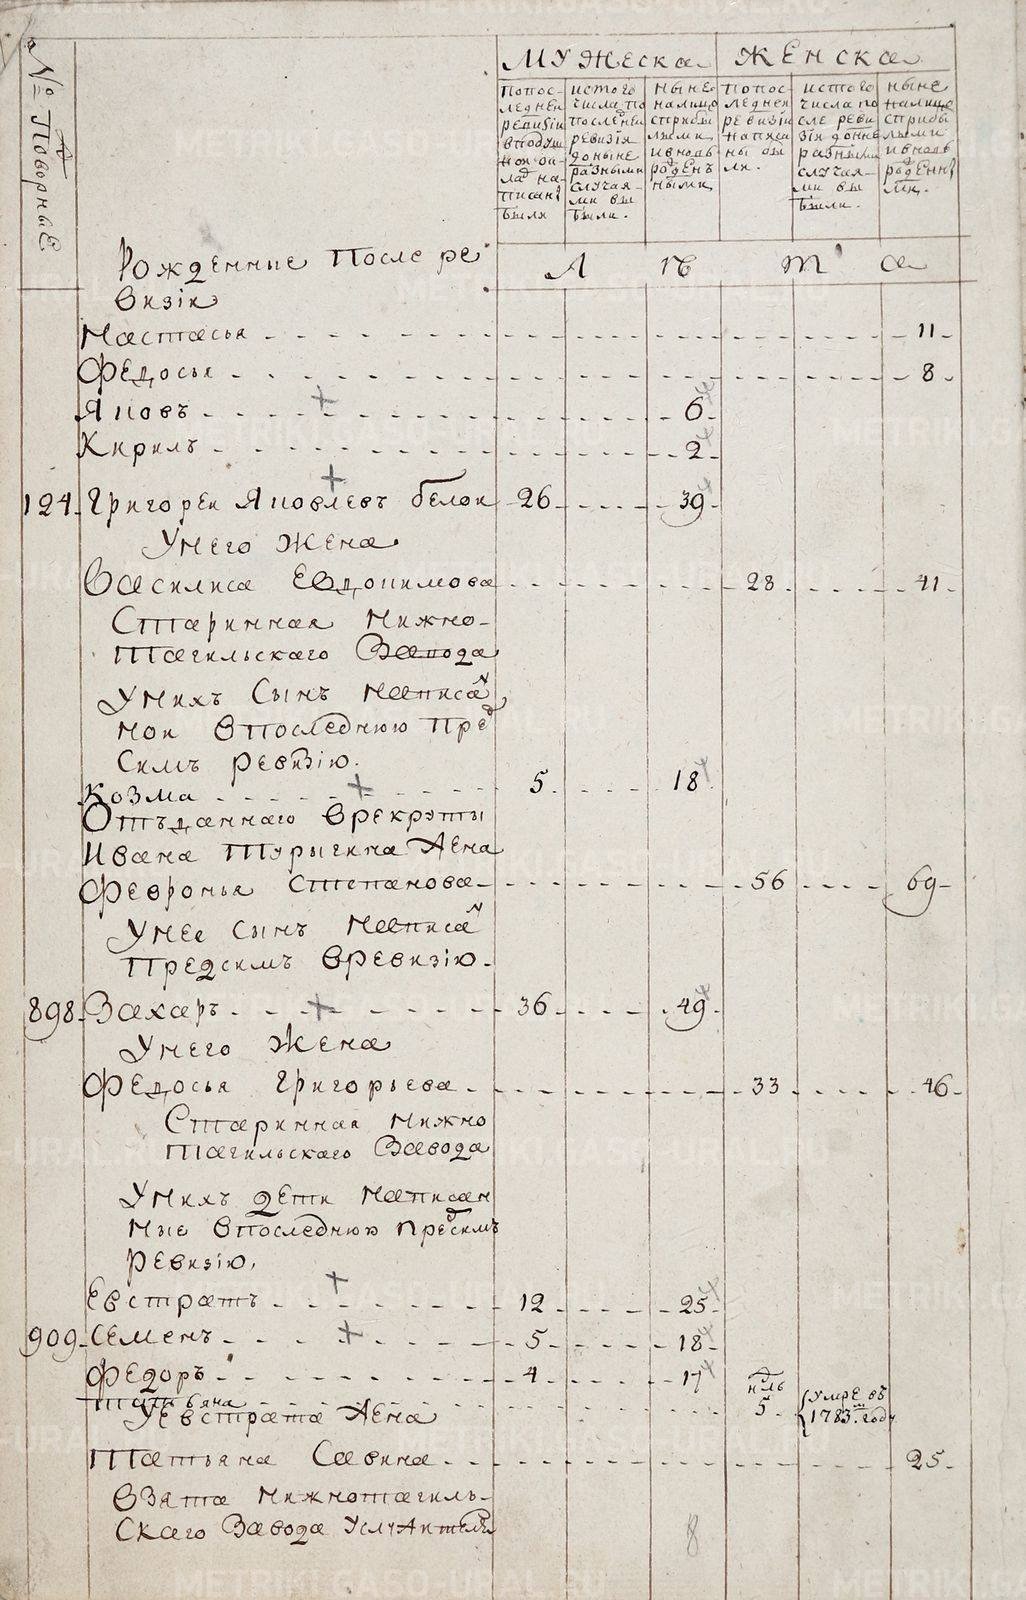 № Подворные
Мужеска
Женска
Попос-
ледней
ревизіи
вподуш
ной ок-
ладъ на-
писанъ
были
истого
числа по
последней
ревизіи
доныне
разными
случая-
ми вы
были.
ныне
налицо
сприбы
лыми
ивновь
рожденъ
ными
Попос-
ледней
ревизіи
написа
ны бы
ли.
истого
числа по
сле реви
зіи доныне
разными
случая-
ми вы
были.
ныне
налице
сприбы
лыми
ивновь
рожденны
ми.
Рожденные после ре
визіи
Л ѣ т а
Настасья 11
Федосья 8
Яковъ 6
Кирилъ 2
124. Григорей Яковлевъ белок 26 39
Унего жена
Василиса Евдокимова 28 41
Старинная Нижно-
тагильскаго завода
Унихъ сынъ написан
ной впоследнюю пред
симъ ревизію.
Козма 5 18
Отъданнаго врекруты
Ивана Турыгина жена
Февронья Степанова 56 69
Унее сынъ написан
предсимъ вревизію.
898. Захаръ 36 49
Унего жена
Федосья Григорьева 33 46
Старинная Нижно
тагильскаго завода
Унихъ дети написан
ные впоследнюю предсимъ
ревизію.
Евстратъ 12 25
909. Семенъ 5 18
Федоръ 4 17
Татьяна нль 5 умре въ
1783м году
Уевстрата жена
Татьяна Савина 25
Взята Нижнотагиль-
скаго завода
8
METRIKI.GASO-URAL.RU